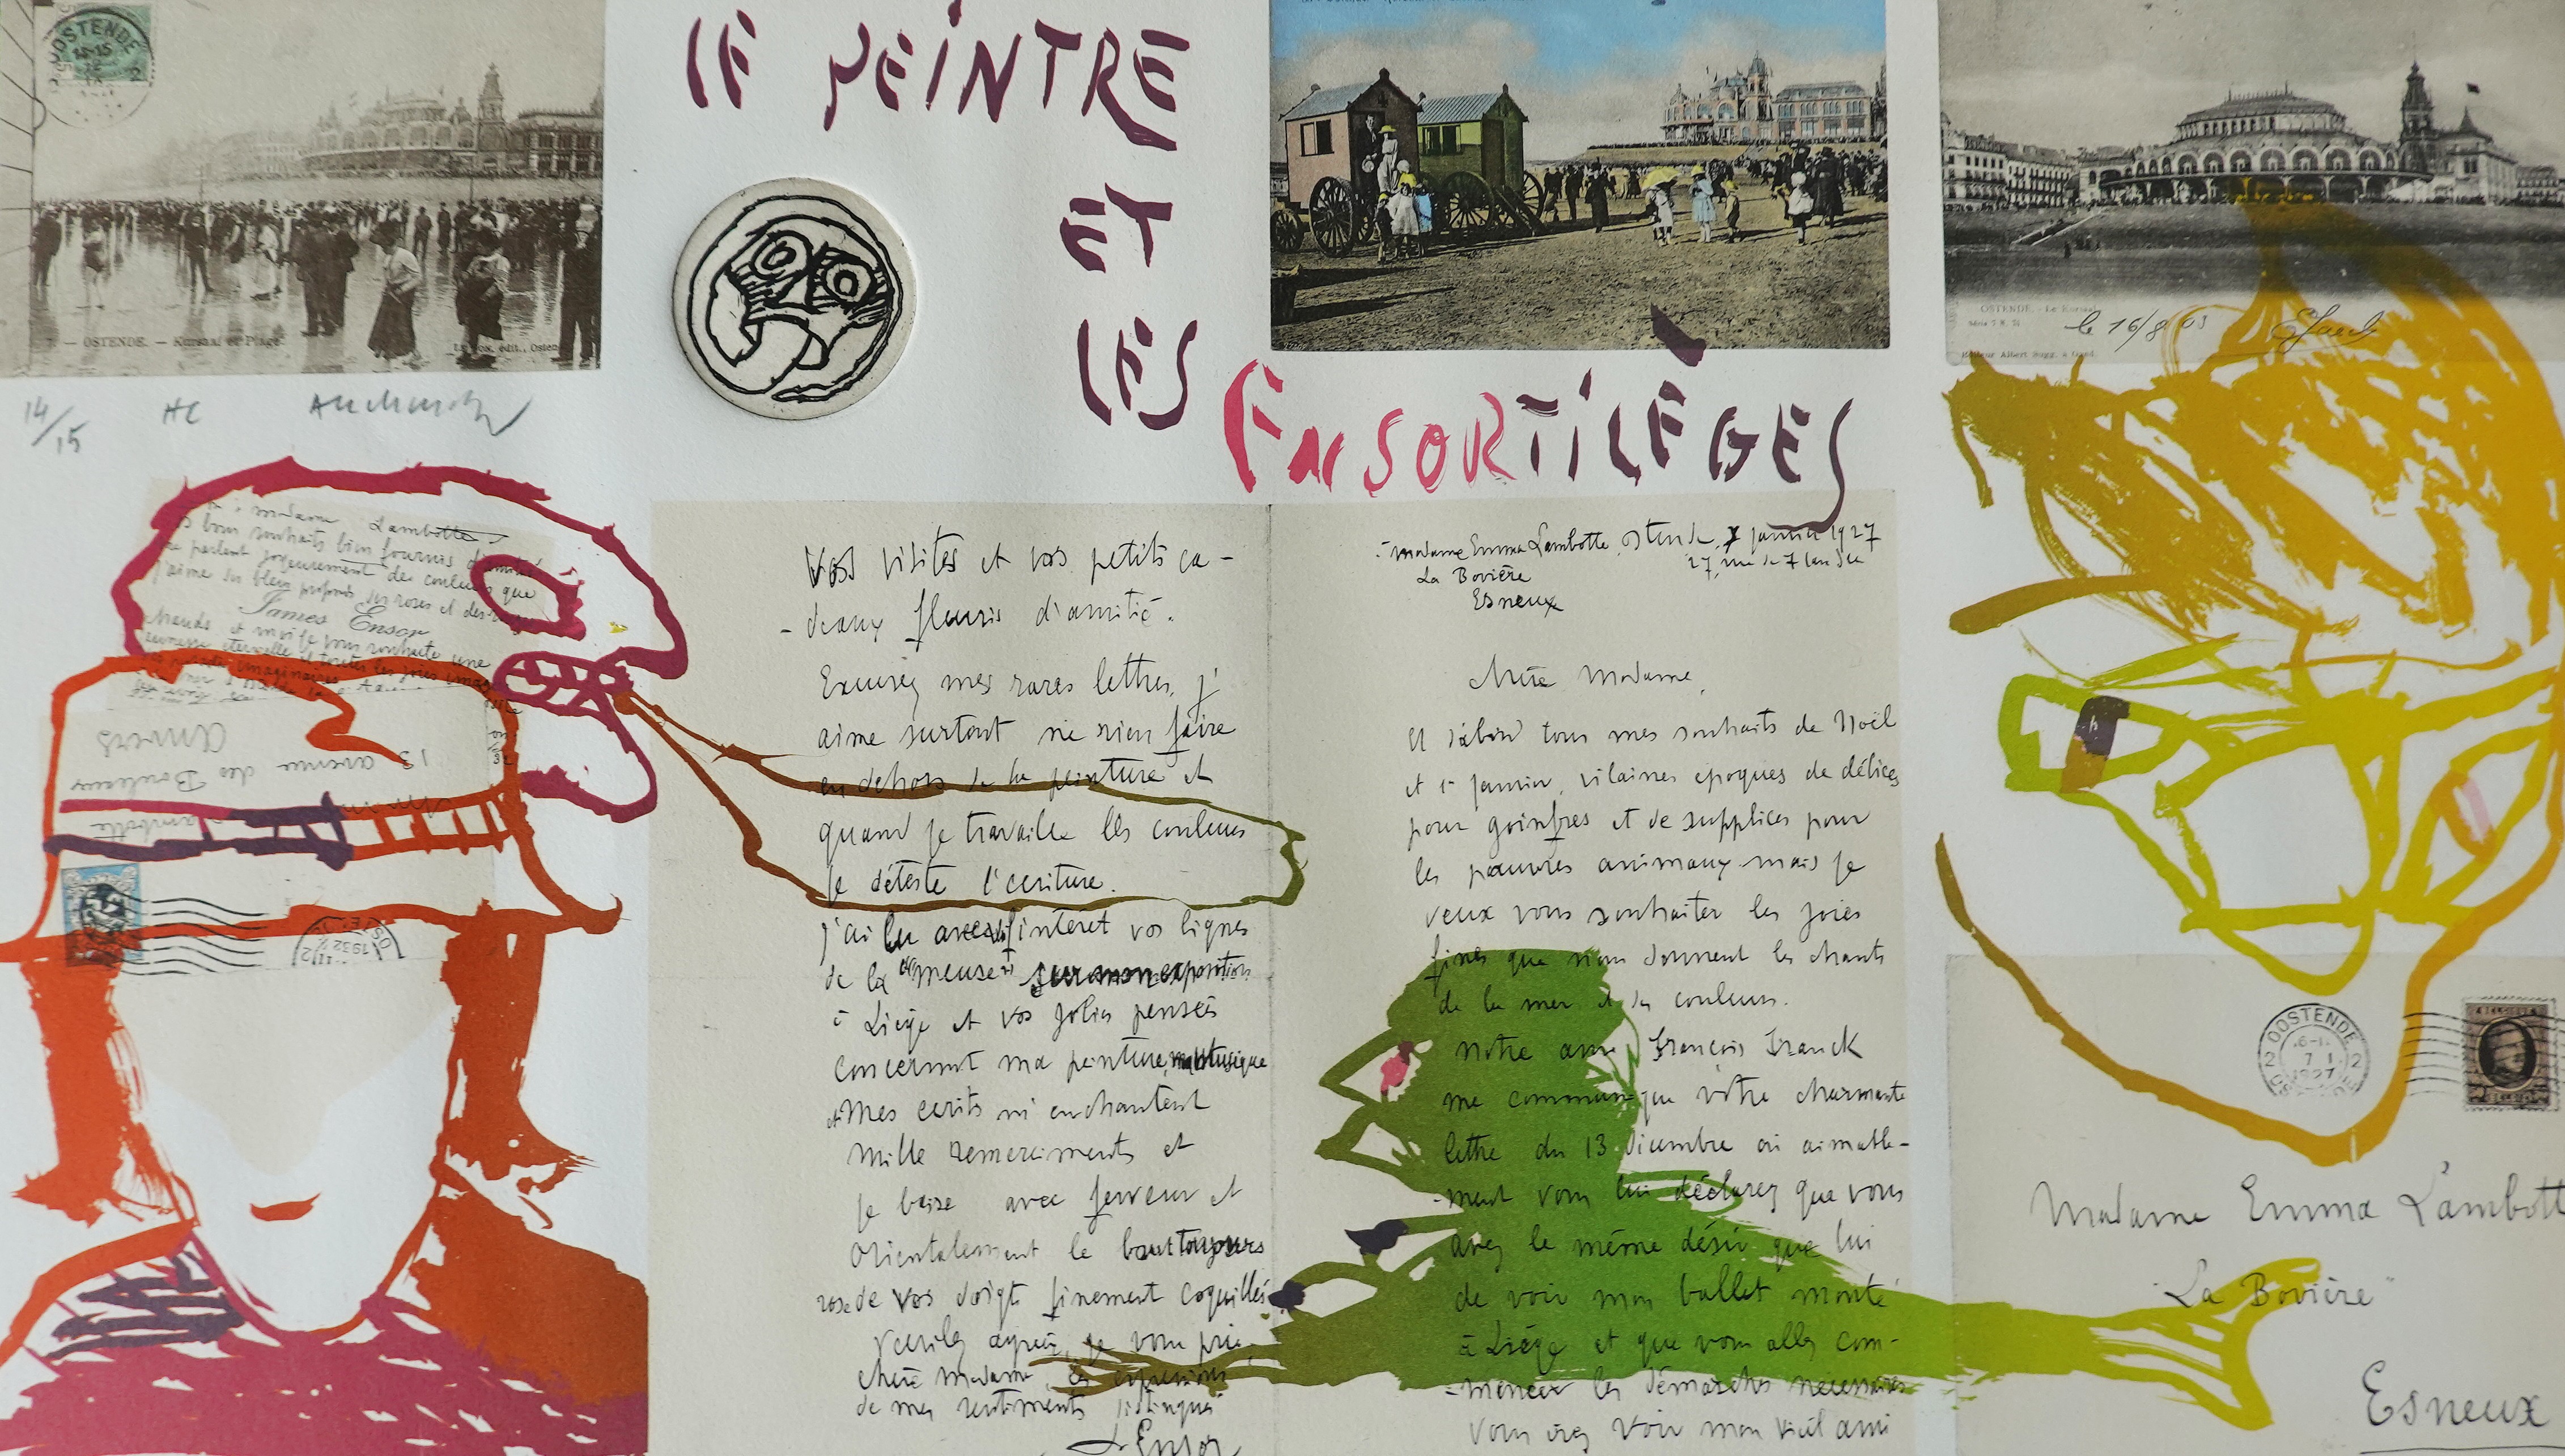 OSTENDE
OSTENDE. — Kursaal et Plage
LE PEINTRE
ET
LES
EnSORTILÈGES
OSTENDE. - Le Kursaal
le 16/8 03
Editeur Albert Sugg, à Gand.
14/15 HC
à madame Lambotte
bons souhaits bien fournis d'amitié
parlent joyeusement des couleurs que
j'aime
James Ensor
et moi je vous souhaite une
eternelle et toutes les joies
13 avenue des Bouleaux
Anvers
Lambotte
1932
Vos visites et vos petits ca-
-deaux fleuris d'amitié.
Excusez mes rares lettres, j'
aime surtout ne rien faire
en dehors de la peinture et
quand je travaille les couleurs
je déteste l'ecriture.
j'ai lu avec intéret vos lignes
de la "meuse" sur mon exposition
à Liège et vos jolies pensées
concernant ma peinture, ma musique
et mes ecrits m'enchantent
Mille remerciments et
je baise avec ferveur et
Orientalement le bout toujours
rose de vos doigts finement coquillés
Veuillez agréer, je vous prie,
chère madame, les expressions
de mes sentiments distingués
J Ensor
à Madame Emma Lambotte, Ostende, 7 janvier 1927
La Bovière 27, rue de Flandre
Esneux
Chère Madame,
Et d'abord tous mes souhaits de Noël
et 1r janvier, vilaines epoques de délices
pour goinfres et de supplices pour
les pauvres animaux mais je
veux vous souhaiter les joies
fines que nous donnent les chants
de la mer et sa couleur.
Notre ami François Franck
me communique vôtre charmante
lettre du 13 Dicembre où aimable-
-ment vous lui déclarez que vous
avez le même désir que lui
de voir mon ballet monté
à Liége et que vous allez com-
-mencer les démarches nécessaires
Vous irez voir mon vieil ami
OOSTENDE
7 1
1927
Madame Emma Lambott
"La Bovière"
Esneux